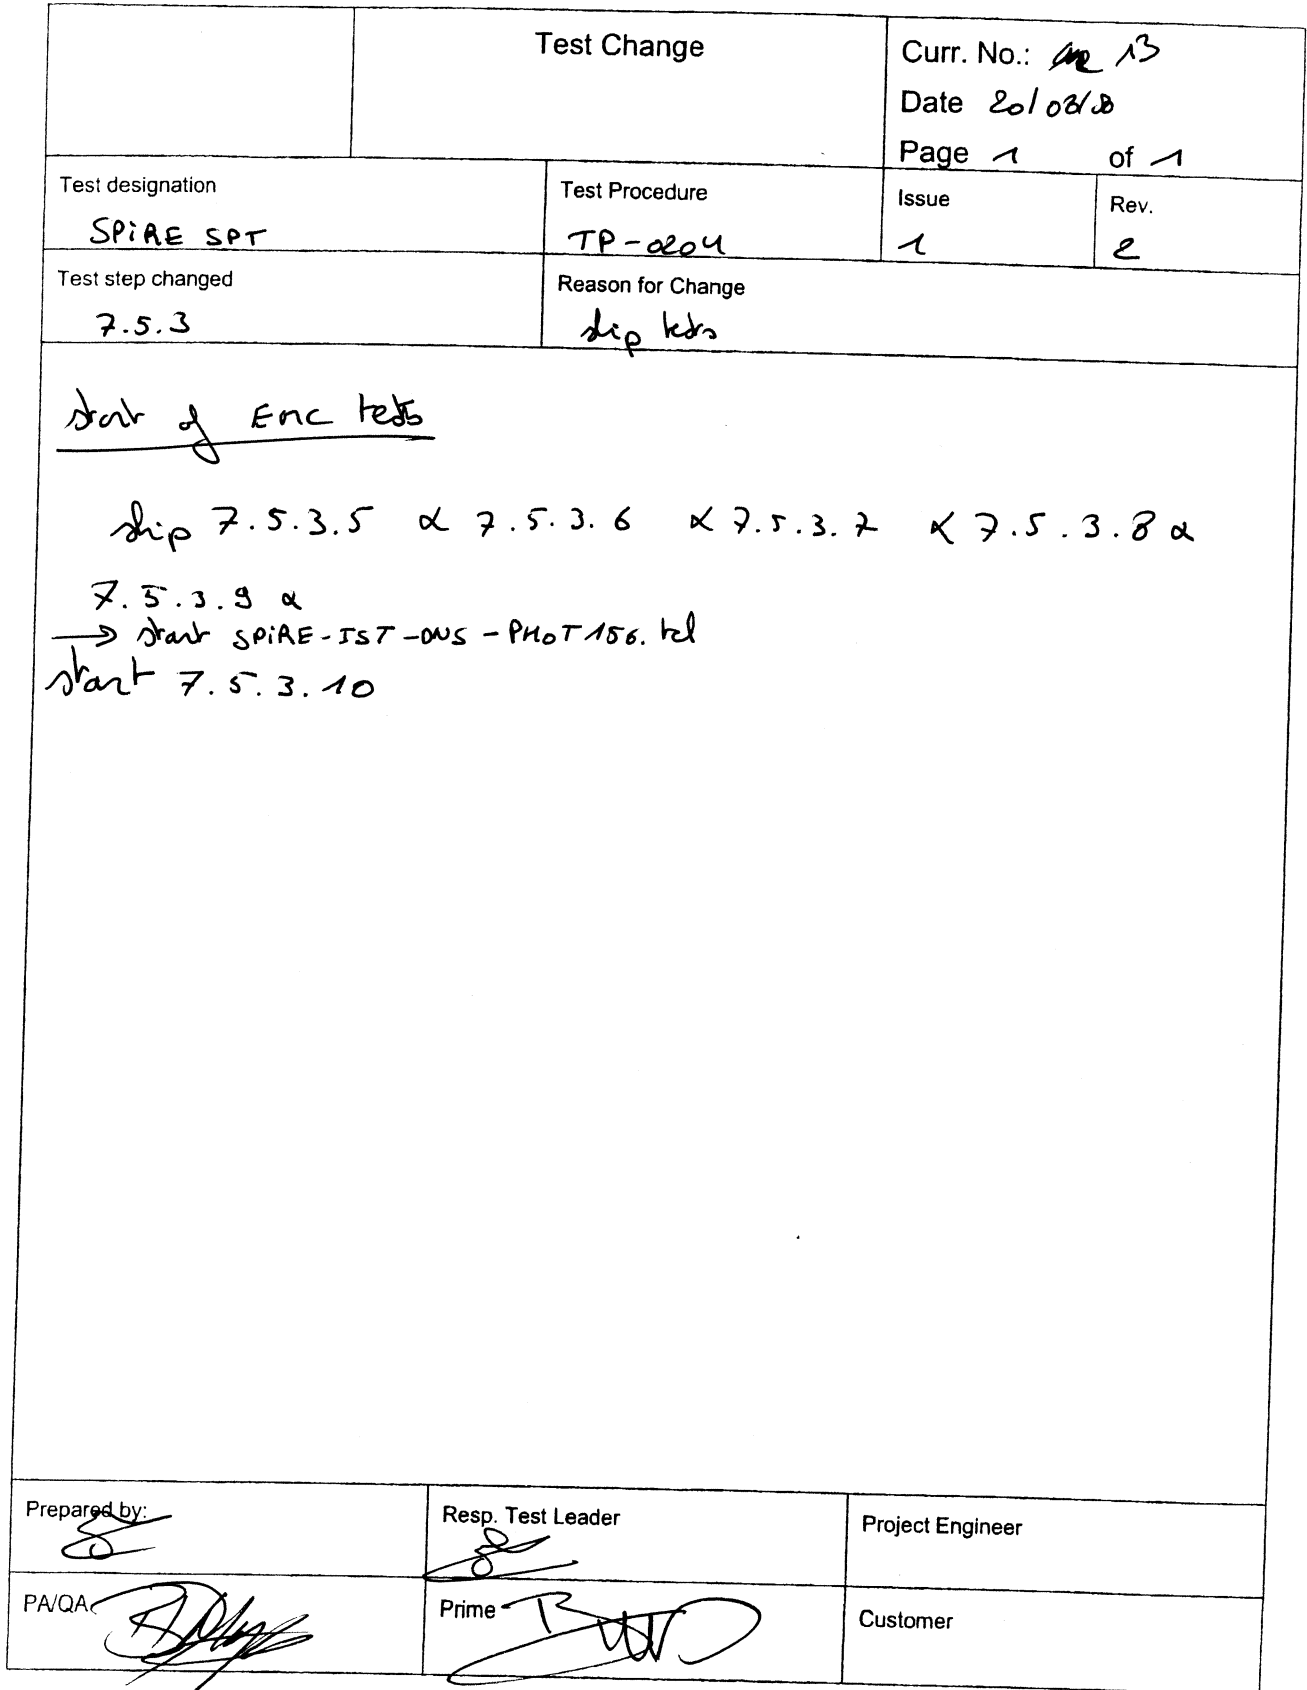 Test Change
Curr. No.: 13
Date 20/03/08
Page 1 of 1
Test designation
SPIRE SPT
Test Procedure
TP-0204
Issue
1
Rev.
2
Test step changed
7.5.3
Reason for Change
skip tests
start of EMC tests
skip 7.5.3.5 & 7.5.3.6 & 7.5.3.7 & 7.5.3.8 &
7.5.3.9 &
→ start SPIRE-IST-ONS-PHOT156.tcl
start 7.5.3.10
Prepared by:
Resp. Test Leader
Project Engineer
PA/QA
Prime
Customer